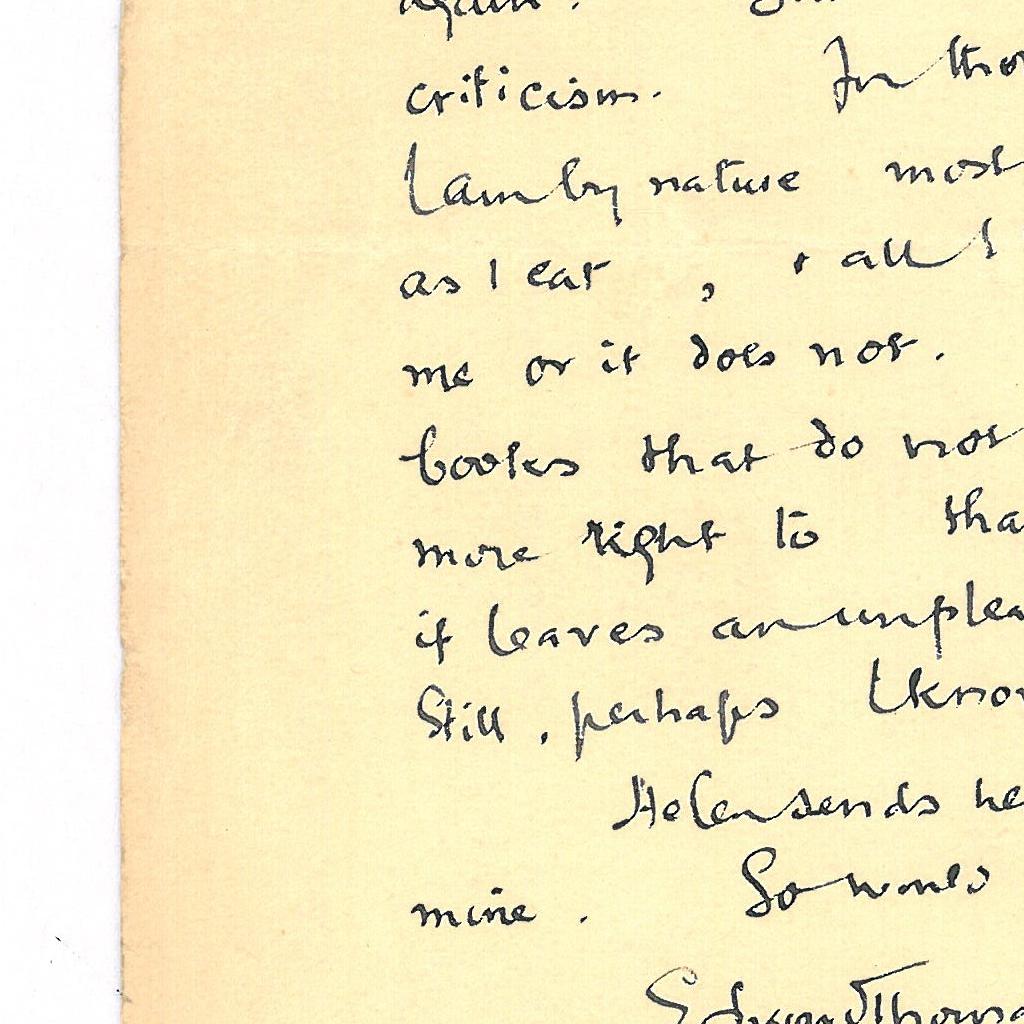 again.
criticism. In tho
I am by nature most
as I eat , & all I
me or it does not.
books that do not
more right to tha
it leaves an unplea
Still, perhaps I know
Helen sends he
mine. So would
Edward Thomas